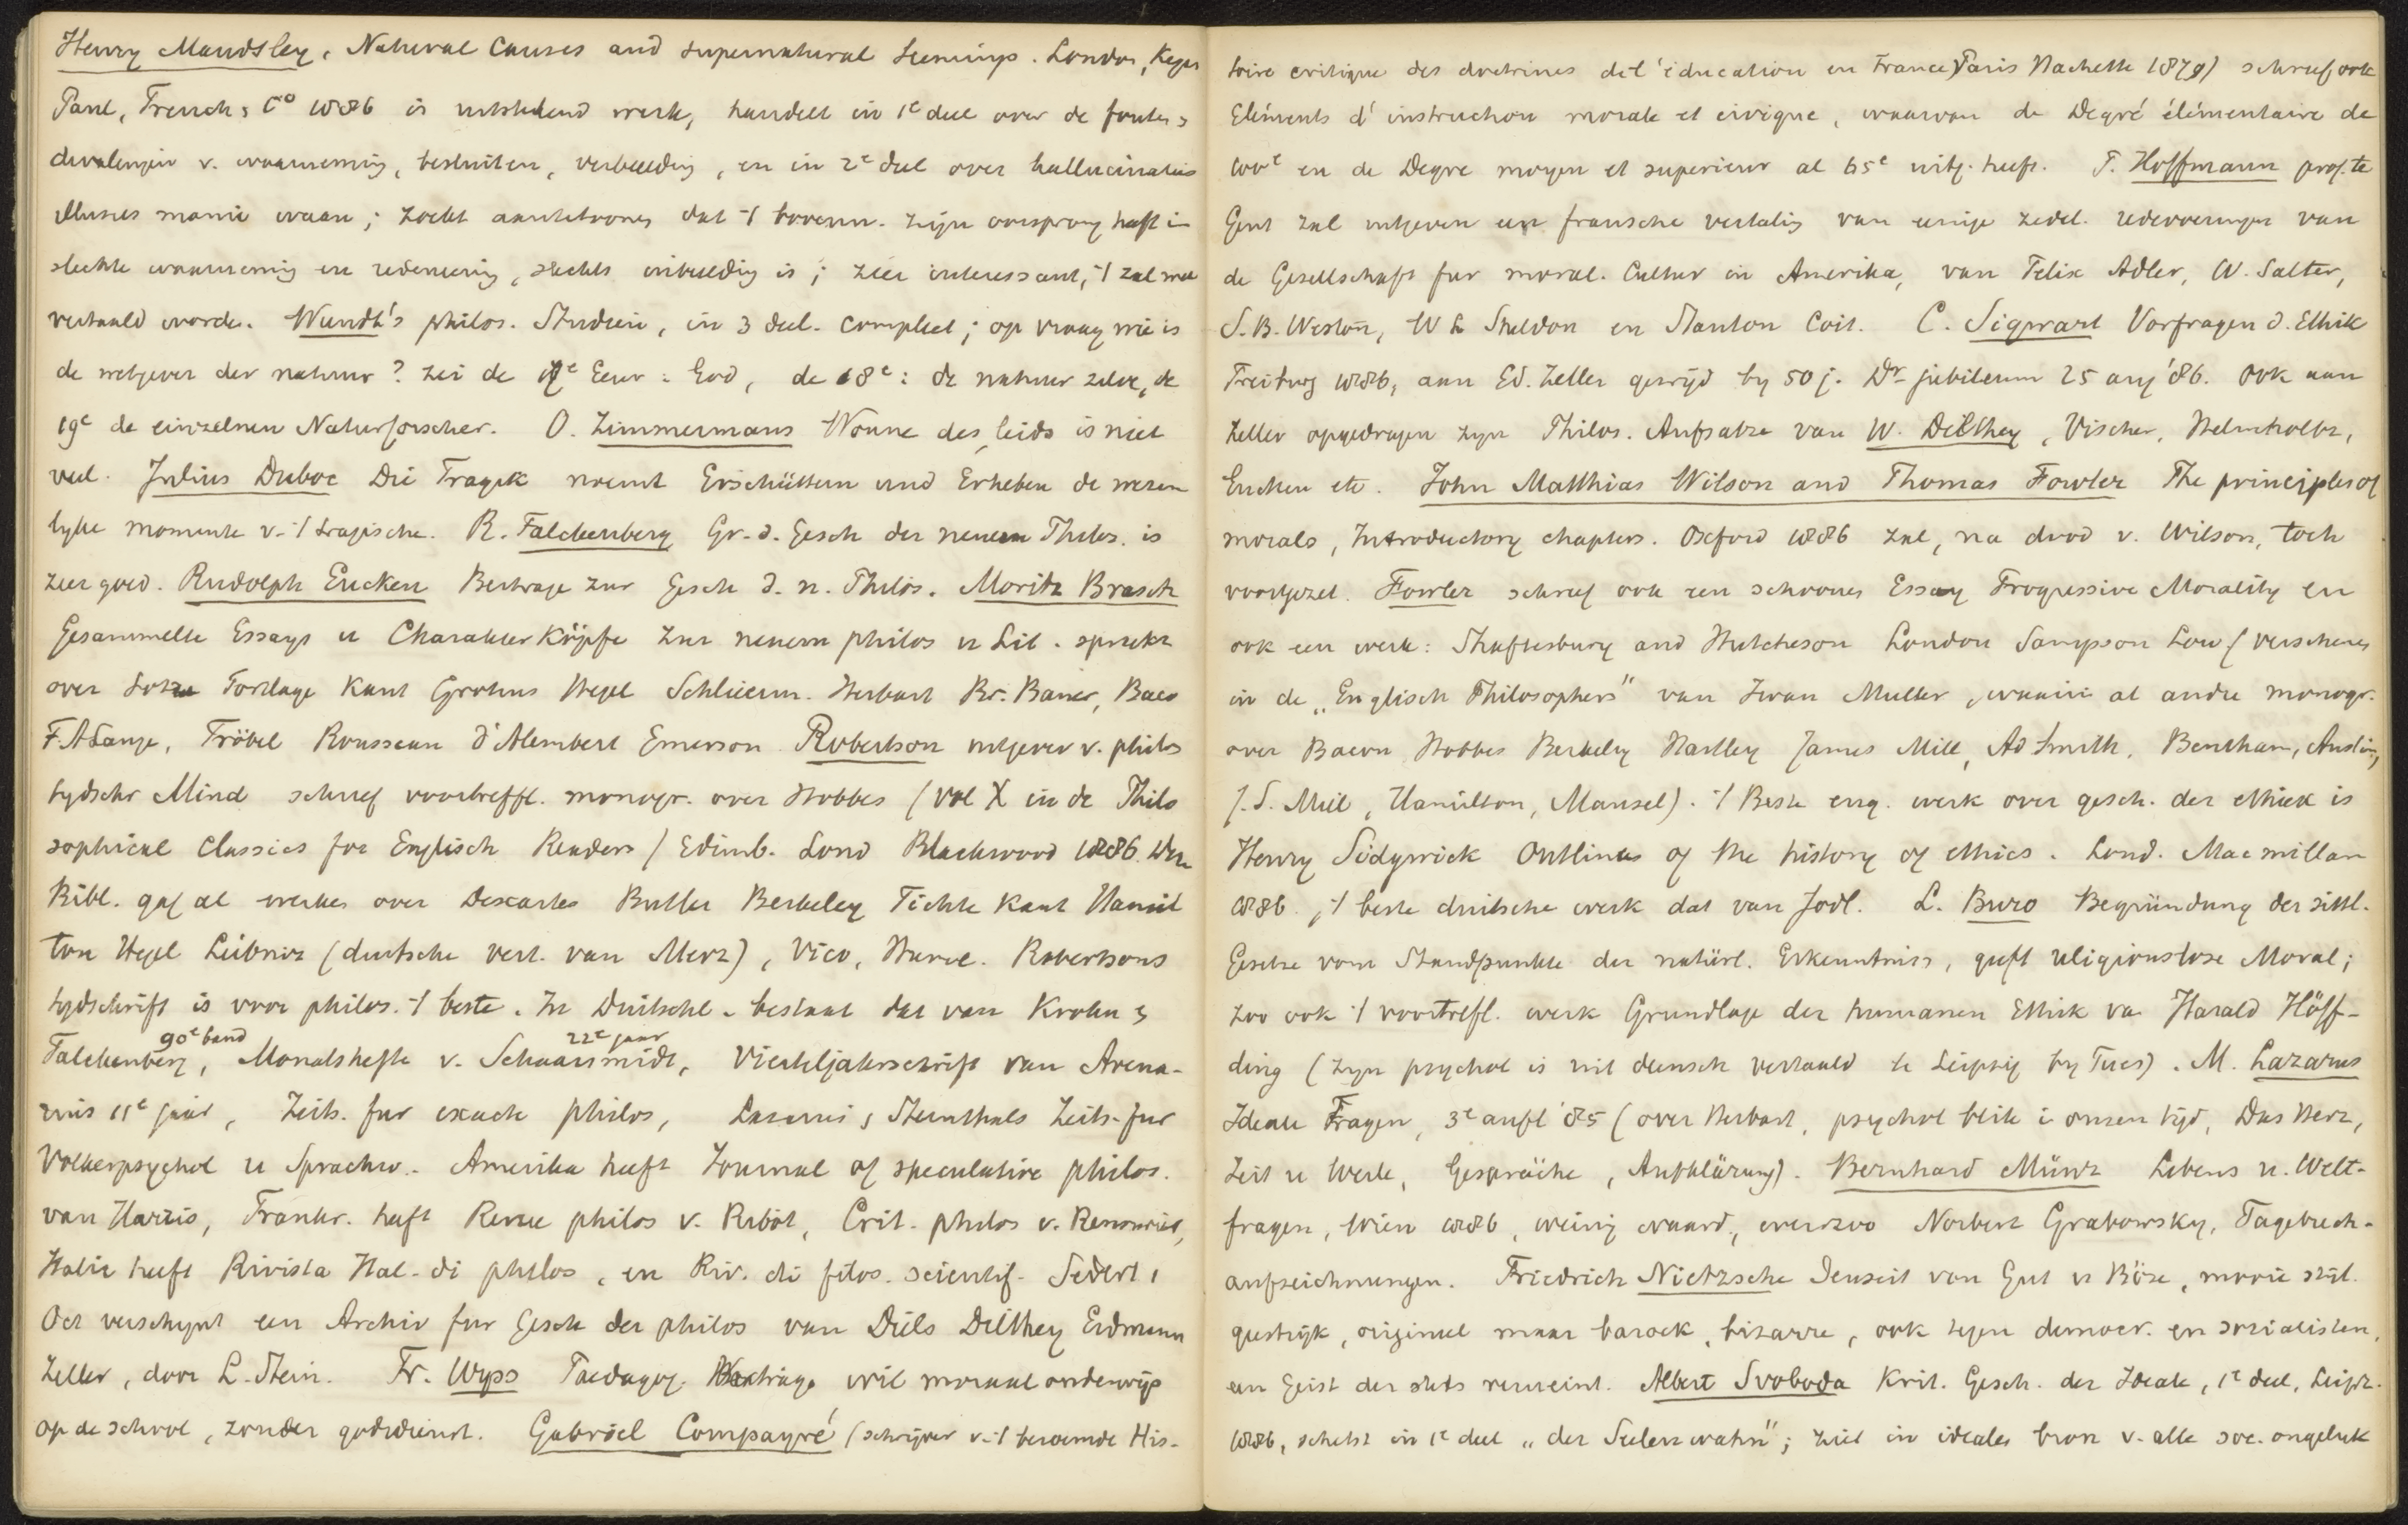 Henry Maudsley, Natural Causes and supernatural Seemings. London, Kegan
Paul, Trench, Co 1886 is uitstekend werk, handelt in 1e deel over de fouten &
dwalingen v. waarneming, besluiten, verbeelding, en in 2e deel over hallucinaties
illusies manie waan; zoekt aantetoonen dat 't bovenn. zijn oorsprong heeft in
slechte waarneming en redeneering, slechts inbeelding is; zeer interessant, 't zal wel
vertaald worden. Wundt's philos. Studien, in 3 deel. compleet; op vraag wie is
de wetgever der natuur? zei de 17e Eeuw: God, de 18e: de natuur zelve, de
19e de einzelnen Naturforscher. O. Zimmermans Wonne des Leids is niet
veel. Julius Duboc Die Tragik noemt Erschüttern und Erheben de wezen
lijke momenten v. 't tragische. R. Falckenberg Gr. d. Gesch der neuern Philos. is
zeer goed. Rudolph Eucken Beitrage zur Gesch d. n. Philos. Moritz Brasch
Gesammelte Essays u Charakter Köpfe zur neuern philos u Lit. spreekt
over Lotze Fortlage Kant Grotius Hegel Schleierm. Herbart Br. Bauer, Baco
F.A Lange, Fröbel Rousseau d'Alembert Emerson. Robertson uitgever v. philos
tydschr Mind schreef voortreffl. monogr. over Hobbes (vol X in de Philo
sophical Classics for Englisch Readers) Edimb. Lond Blackwood 1886. Deze
Bibl. gaf al werken over Descartes Butler Berkeley Fichte Kant Hamil
ton Hegel Leibniz (duitsche vert. van Merz), Vico, Hume. Robertsons
tydschrift is voor philos. 't beste. In Duitschl. bestaat dat van Krohn &
90e band 22e jaar
Falckenberg, Monatshefte v. Schaarsmidt, Vierteljahrschrift van Avena-
rius 11e jaar, Zeits. fur exacte philos, Lazarus & Steinthals Zeits. fur
Volkerpsychol u Sprachw. Amerika heeft Journal of speculative philos.
van Harris, Frankr. heeft Revue philos v. Ribot, Crit. philos v. Renouvier,
Italie heeft Rivista Ital. di philos, en Riv. di filos. scientif. Sedert 1
Oct verschynt een Archiv fur Gesch der philos van Diels Dilthey Erdmann
Zeller, door L. Stein. Fr. Wyss Paedagog. Vortrage wil moraal onderwijs
op de school, zonder godsdienst. Gabriel Compayré (schrijver v. 't beroemde His-
toire critique des doctrines de l'éducation en France) Paris Hachette 1879) schreef ook
Eléments d'instruction morale et civique, waarvan de Degré élémentaire de
100e en de Degre moyen et superieur al 65e uitg. heeft. F. Hoffmann prof. te
Gent zal uitgeven een fransche vertaling van eenige zedel. redevoeringen van
de Gesellschaft fur moral. Cultur in Amerika, van Felix Adler, W. Salter,
S.B. Weston, W L Sheldon en Stanton Coit. C. Sigwart Vorfragen d. Ethik
Freiburg 1886, aan Ed. Zeller gewijd by 50 j. Dr. jubileum 25 aug '86. Ook aan
Zeller opgedragen zyn Philos. Aufsatze van W. Dilthey, Vischer, Helmholtz,
Eucken etc. John Matthias Wilson and Thomas Fowler The principles of
morals, Introductory chapters. Oxford 1886 zal, na dood v. Wilson, toch
voortgezet. Fowler schreef ook een schoones Essay Progressive Morality en
ook een werk: Shaftesbury and Hutcheson London Sampson Low (verschenen
in de „Englisch Philosophers" van Iwan Muller, waarin al andre monogr.
over Bacon Hobbes Berkeley Hartley James Mill, Ad Smith, Bentham, Austin,
J.S. Mill, Hamilton, Mansel). 't Beste eng. werk over gesch. der ethiek is
Henry Sidgwick Outlines of the history of ethics. Lond. Macmillan
1886, 't beste duitsche werk dat van Jodl. L. Buro Begründung der sittl.
Gesetze vom Standpunkte der natürl. Erkenntniss, geeft religionslose Moral;
zoo ook 't voortrefl. werk Grundlage der humanen Ethik va Harald Höff-
ding (zyn psychol is uit deensch vertaald te Leipzig by Fues). M. Lazarus
Ideale Fragen, 3e aufl '85 (over Herbart, psychol blik i onzen tijd, Das Herz,
Zeit u Weile, Gespräche, Aufklärung). Bernhard Münz Lebens u. Welt-
fragen, Wien 1886, weinig waard, evenzoo Norbert Grabowsky, Tagebuch-
aufzeichnungen. Friedrich Nietzsche Jenseit von Gut u Böse, mooie stijl.
geestrijk, origineel maar barock, bizarre, ook tegen democr. en socialisten,
een Geist der stets verneint. Albert Svoboda Krit. Gesch. der Ideale, 1e deel, Leipz.
1886, schetst in 1e deel „der Seelenwahn"; ziet in idealen bron v. alle soc. ongeluk